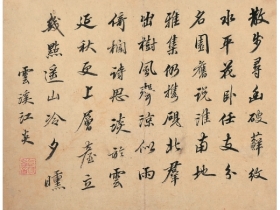 散步尋幽破蘚紋
水平花臥任支分
名園舊說淮南地
雅集仍携硯北群
出樹風聲涼似雨
倚欄詩思淡於雲
延秋更上層臺立
幾點遥山冷夕曛
雲溪江炎